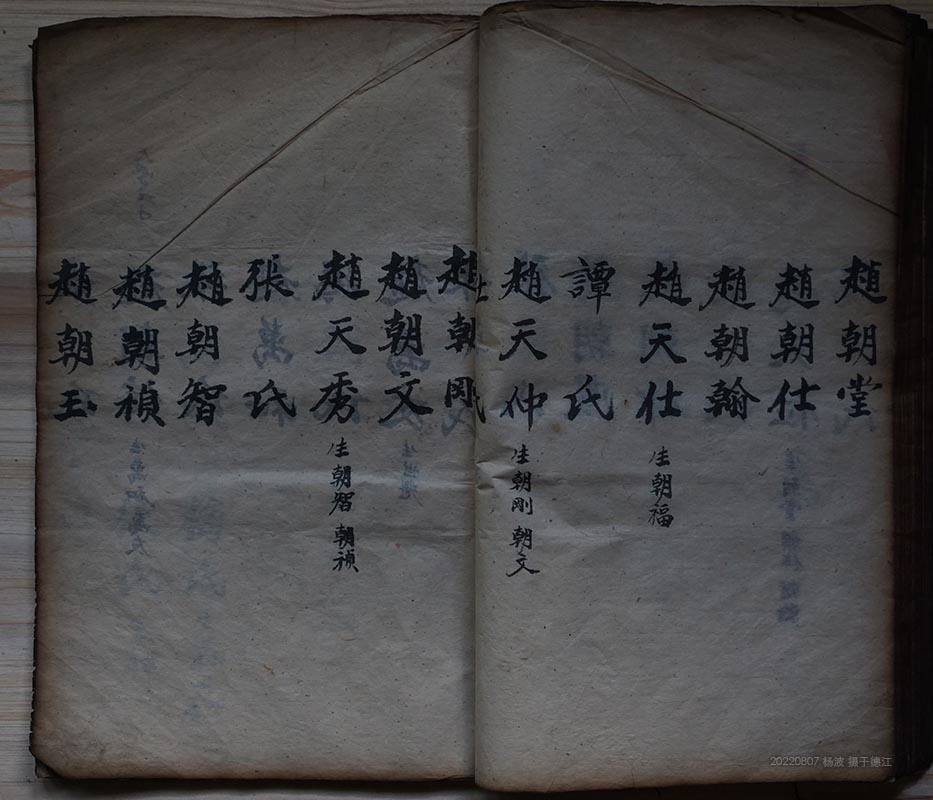 趙朝堂
趙朝仕
趙朝翰
趙天仕
生朝福
譚氏
趙天仲
生朝剛 朝文
趙朝剛
趙朝文
趙天秀
生朝智 朝禎
張氏
趙朝智
趙朝禎
趙朝玉
20220807 杨波 摄于德江